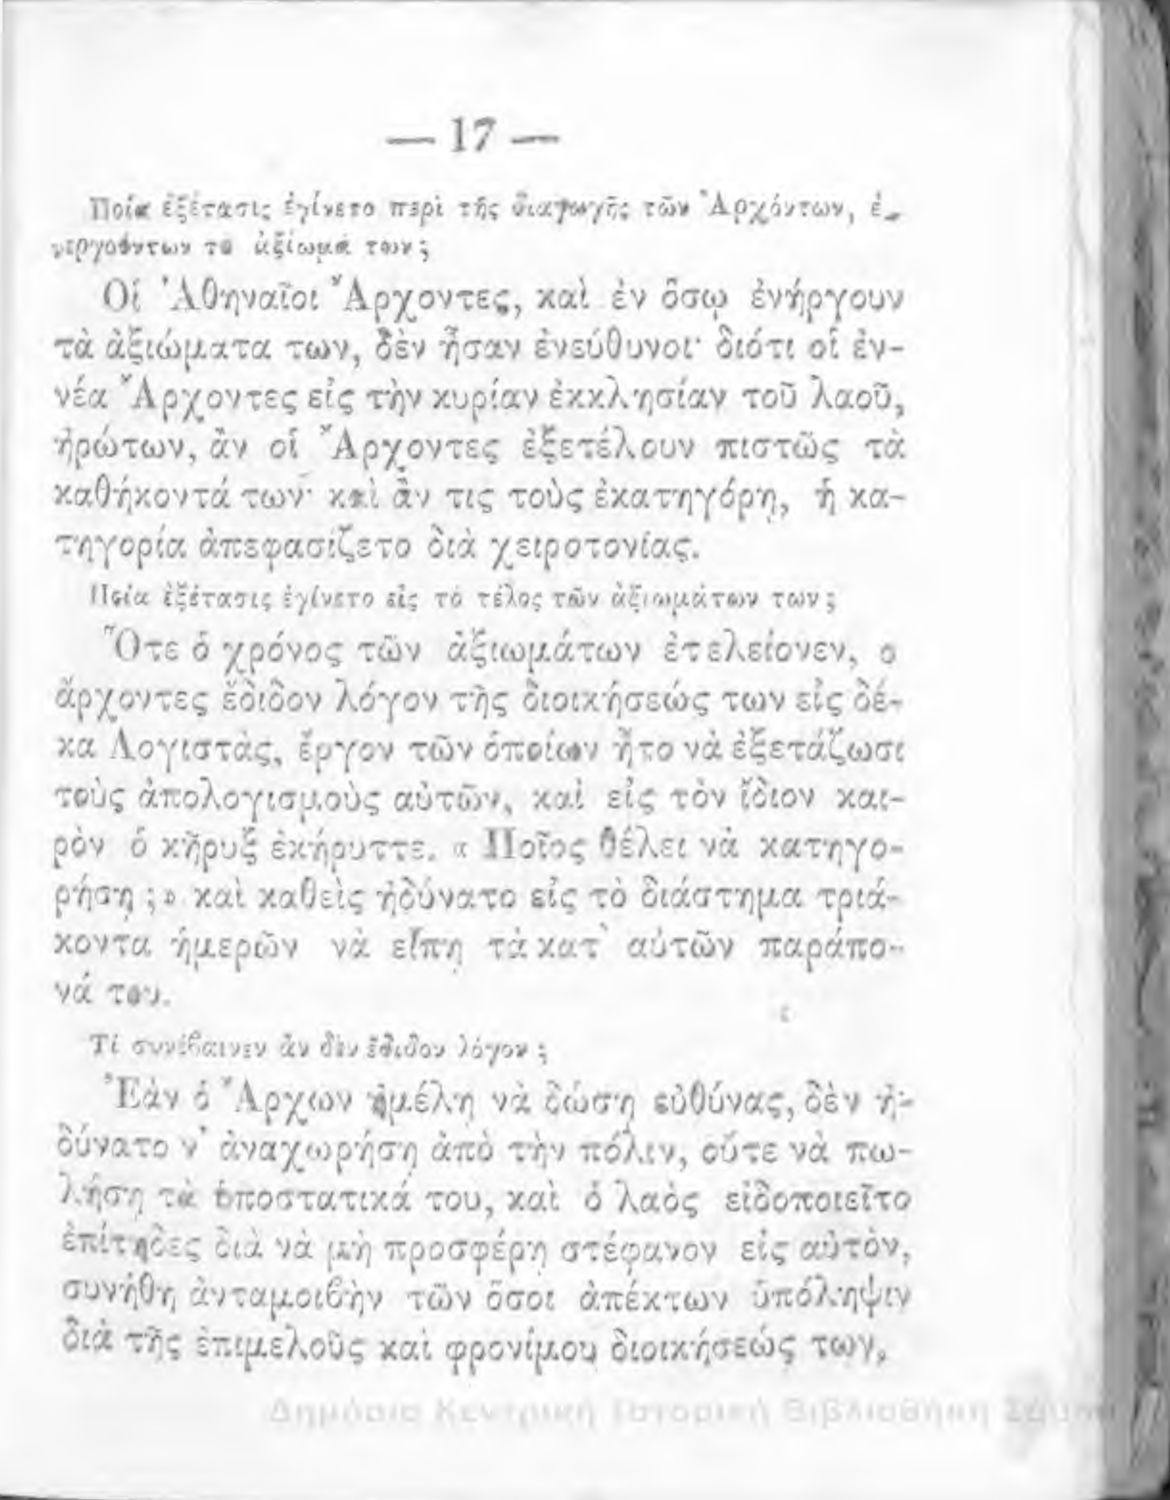 — 17 —
Ποία ἐξέτασις ἐγίνετο περὶ τῆς διαγωγῆς τῶν Ἀρχόντων, ἐ-
νεργούντων τὸ ἀξίωμά των;
Οἱ Ἀθηναῖοι Ἄρχοντες, καὶ ἐν ὅσῳ ἐνήργουν
τὰ ἀξιώματα των, δὲν ἦσαν ἐνεύθυνοι· διότι οἱ ἐν-
νέα Ἄρχοντες εἰς τὴν κυρίαν ἐκκλησίαν τοῦ λαοῦ,
ἠρώτων, ἂν οἱ Ἄρχοντες ἐξετέλουν πιστῶς τὰ
καθήκοντά των· καὶ ἂν τις τοὺς ἐκατηγόρῃ, ἡ κα-
τηγορία ἀπεφασίζετο διὰ χειροτονίας.
Ποία ἐξέτασις ἐγίνετο εἰς τὸ τέλος τῶν ἀξιωμάτων των;
Ὅτε ὁ χρόνος τῶν ἀξιωμάτων ἐτελείονεν, ο
ἄρχοντες ἔδιδον λόγον τῆς διοικήσεώς των εἰς δέ-
κα Λογιστὰς, ἔργον τῶν ὁποίων ἦτο νὰ ἐξετάζωσι
τοὺς ἀπολογισμοὺς αὐτῶν, καὶ εἰς τὸν ἴδιον και-
ρὸν ὁ κῆρυξ ἐκήρυττε. « Ποῖος θέλει νὰ κατηγο-
ρήσῃ ;» καὶ καθεὶς ἠδύνατο εἰς τὸ διάστημα τριά-
κοντα ἡμερῶν νὰ εἴπῃ τὰ κατ' αὐτῶν παράπο-
νά του.
Τί συνέβαινεν ἂν δὲν ἔδιδον λόγον ;
Ἐὰν ὁ Ἄρχων ἠμέλῃ νὰ δώσῃ εὐθύνας, δὲν ἠ-
δύνατο ν' ἀναχωρήσῃ ἀπὸ τὴν πόλιν, οὔτε νὰ πω-
λήσῃ τὰ ὑποστατικά του, καὶ ὁ λαὸς εἰδοποιεῖτο
ἐπίτηδες διὰ νὰ μὴ προσφέρῃ στέφανον εἰς αὐτὸν,
συνήθη ἀνταμοιβὴν τῶν ὅσοι ἀπέκτων ὑπόληψιν
διὰ τῆς ἐπιμελοῦς καὶ φρονίμου διοικήσεώς των,
Δημόσια Κεντρική Ιστορική Βιβλιοθήκη